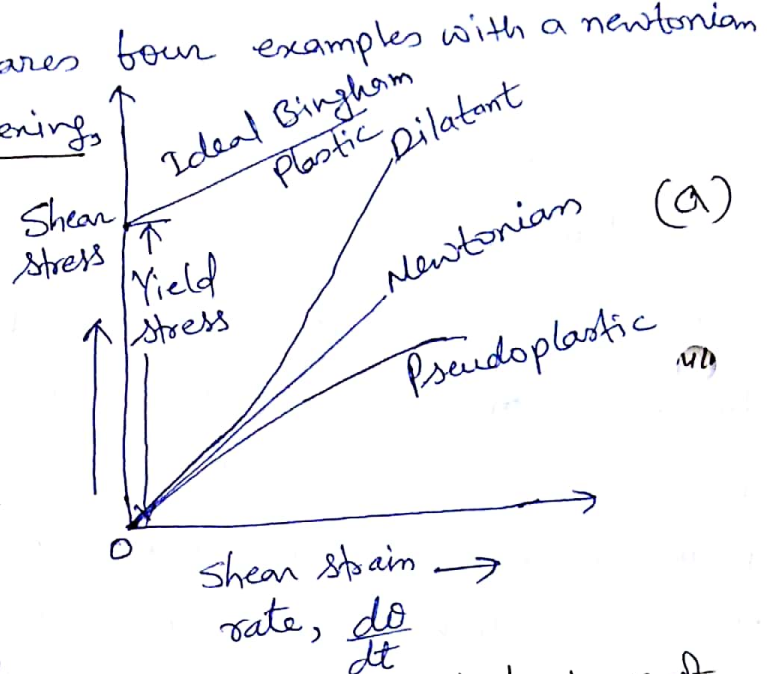 ares four examples with a newtonian
ening,
Ideal Bingham
Plastic
Dilatant
Shear
stress
Yield
stress
Newtonian
(a)
Pseudoplastic
0
Shear strain
rate, dθ
dt